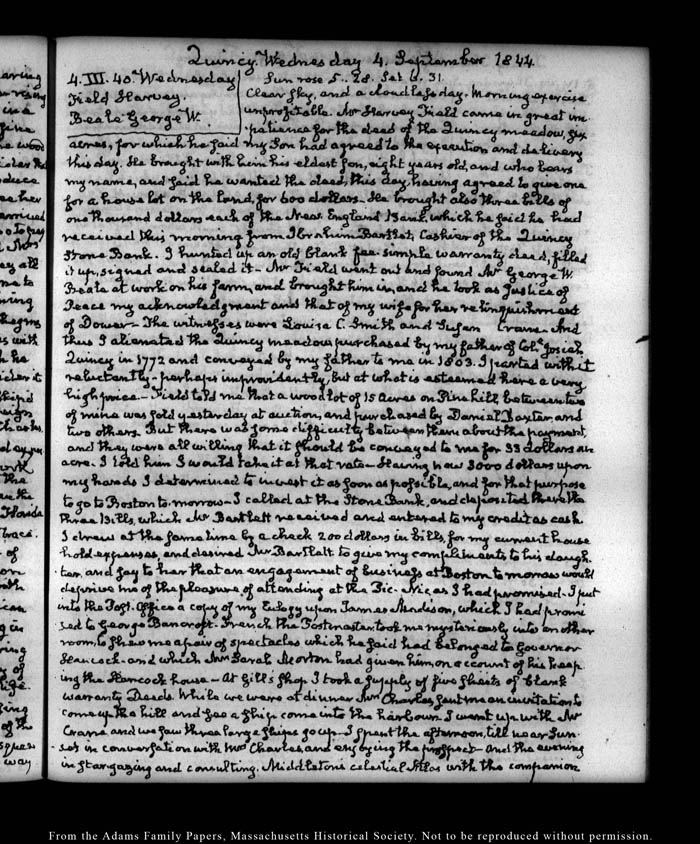 Quincy. Wednesday 4. September 1844.
4. III. 40. Wednesday
Field Harvey.
Beale George W.
Sun rose 5. 28. Set 6. 31.
Clear sky, and a cloudless day. Morning exercise
unprofitable. Mr Harvey Field came in great im-
patience for the deed of the Quincy meadow, six
acres, for which he said my Son had agreed to the execution and delivery
this day. He brought with him his eldest son, eight years old, and who bears
my name, and said he wanted the deed, this day, having agreed to give one
for a house lot on the land, for 600 dollars. He brought also three bills of
one thousand dollars each of the New England Bank, which he said he had
received this morning from Ibrahim Bartlet, Cashier of the Quincy
Stone Bank. I hunted up an old blank fee-simple warranty deed, filled
it up, signed and sealed it. Mr Field went out and found Mr George W.
Beale at work on his farm, and brought him in, and he took as Justice of
Peace my acknowledgment and that of my wife for her relinquishment
of Dower. The witnesses were Louisa C. Smith and Susan Crane. And
thus I alienated the Quincy meadow purchased by my father of Coll. Josiah
Quincy in 1772 and conveyed by my father to me in 1803. I parted with it
reluctantly. perhaps improvidently, but at what is esteemed here a very
high price. Field told me that a wood lot of 15 acres on Pine hill, between two
of mine was sold yesterday at auction, and purchased by Daniel Baxter and
two others. But there was some difficulty between them about the payment,
and they were all willing that it should be conveyed to me for 33 dollars an
acre. I told him I would take it at that rate. Having now 3000 dollars upon
my hands I determined to invest it as soon as possible, and for that purpose
to go to Boston to-morrow. I called at the Stone Bank, and deposited there the
three Bills, which Mr Bartlett received and entered to my credit as cash.
I drew at the same time by a check 200 dollars in bills, for my current house
hold expenses, and desired Mr Bartlatt to give my compliments to his daugh-
ter, and say to her that an engagement of business at Boston to morrow would
deprive me of the pleasure of attending at the Pic-Nic as I had promised. I put
into the Post-Office a copy of my Eulogy upon James Madison, which I had promi
sed to George Bancroft. French the Postmaster took me mysteriously into another
room, to shew me a pair of spectacles which he said had belonged to Governor
Hancock. and which Mrs Sarah Morton had given him, on account of his keep-
ing the Hancock house. At Gill's shop I took a supply of five sheets of blank
warranty Deeds. While we were at dinner Mrs Charles sent me an invitation to
come up the hill and see a ship come into the harbour. I went up with Mr
Crane and we saw three large ships go up. I spent the afternoon, till near Sun-
set in conversation with Mrs Charles, and enjoying the prospect. And the evening
in star-gazing and consulting. Middleton's celestial Atlas with the companion
From the Adams Family Papers, Massachusetts Historical Society. Not to be reproduced without permission.